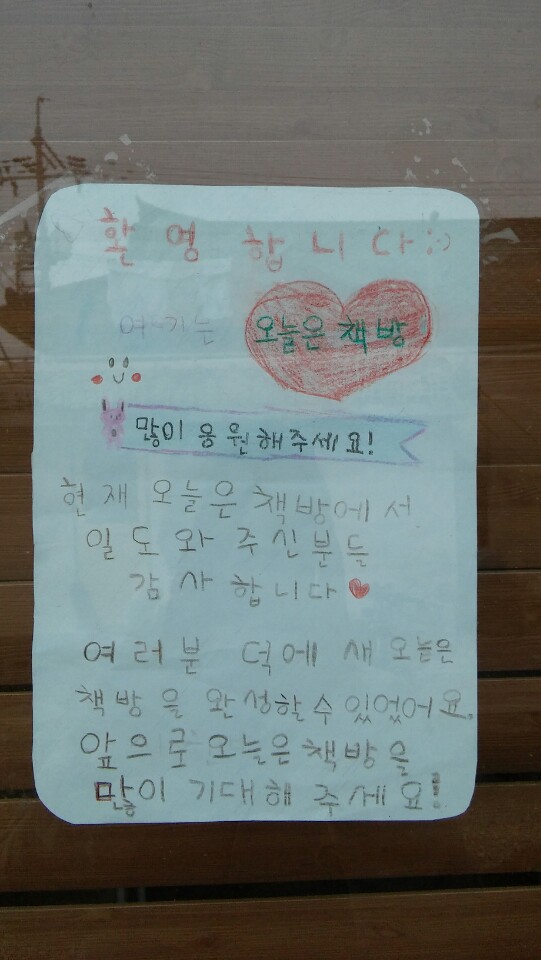 환영합니다:-)
여기는 오늘은 책방
많이 응원해주세요!
현재 오늘은 책방에서
일 도와 주신분들
감사합니다
여러분 덕에 새 오늘은
책방을 완성할 수 있었어요.
앞으로 오늘은 책방을
많이 기대해 주세요!